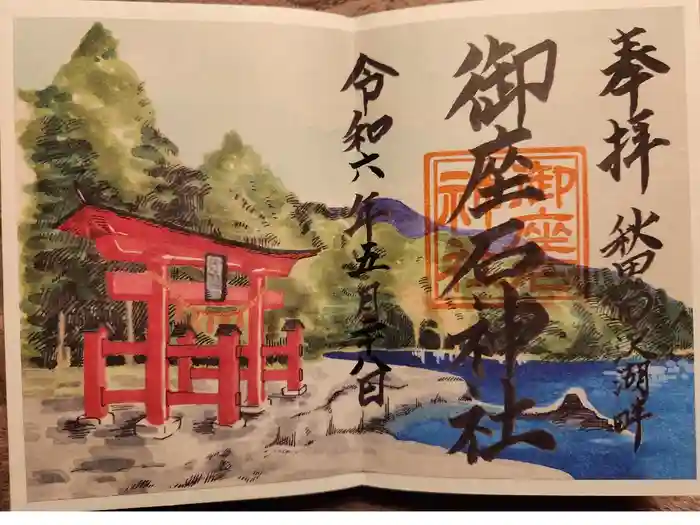 奉拝
秋田たつこ湖畔
御座石神社
御座石
神社
令和六年五月二十八日